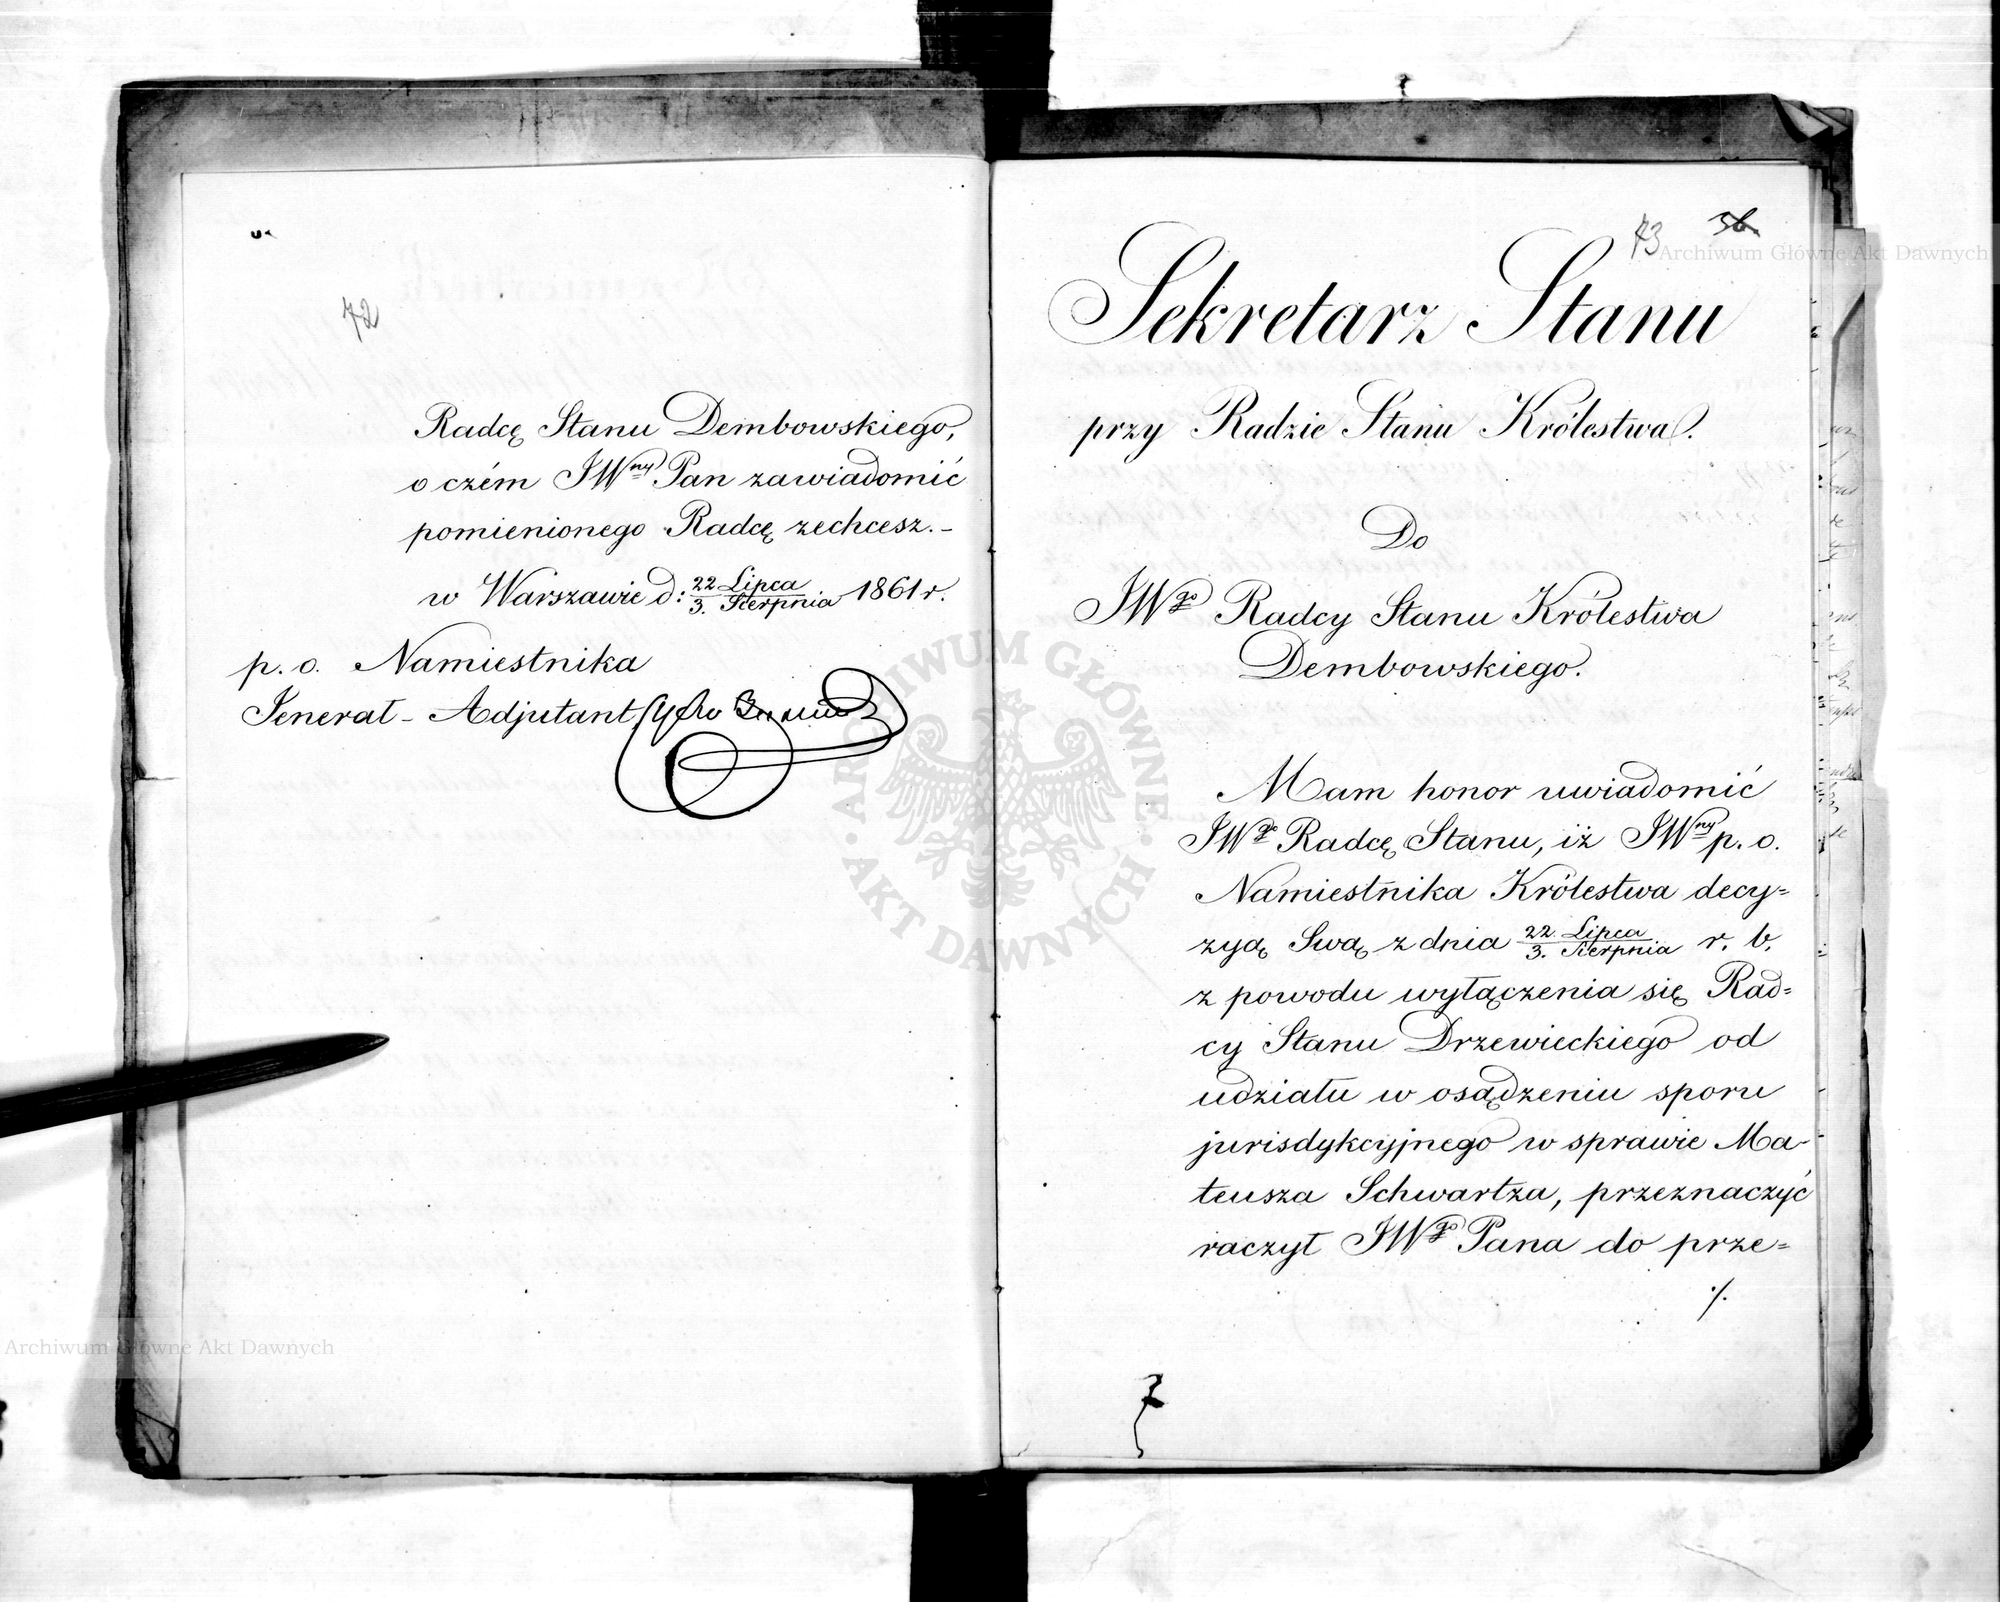 72
Radcę Stanu Dembowskiego,
o czém JWny Pan zawiadomić
pomienionego Radcę zechcesz.-
w Warszawie d: 22 Lipca / 3. Sierpnia 1861 r.
p. o. Namiestnika
Jenerał-Adjutant
73 36
Sekretarz Stanu
przy Radzie Stanu Królestwa.
Do
JWgo Radcy Stanu Królestwa
Dembowskiego.
Mam honor uwiadomić
JWgo Radcę Stanu, iż JWny p. o.
Namiestnika Królestwa decy=
zyą Swą z dnia 22 Lipca / 3. Sierpnia r. b.
z powodu wyłączenia się Rad=
cy Stanu Drzewieckiego od
udziału w osądzeniu sporu
jurisdykcyjnego w sprawie Ma-
teusza Schwartza, przeznaczyć
raczył JWgo Pana do prze=
./.
Archiwum Główne Akt Dawnych
Archiwum Główne Akt Dawnych
ARCHIWUM GŁÓWNE · AKT DAWNYCH ·